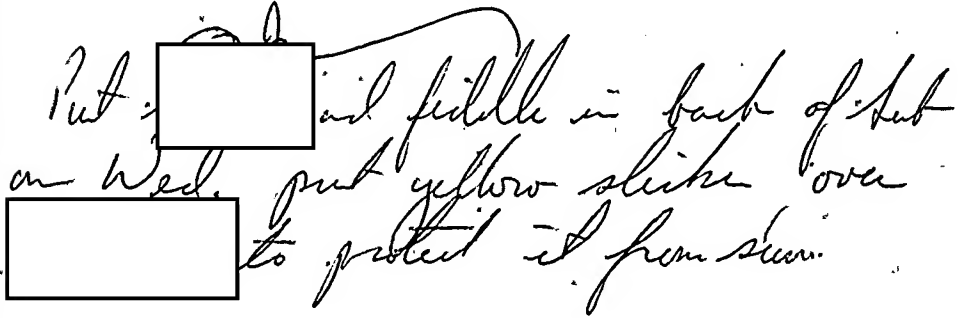 Put and fiddle in back of Sub
on Wed. put yellow slicker over
to protect it from sun.